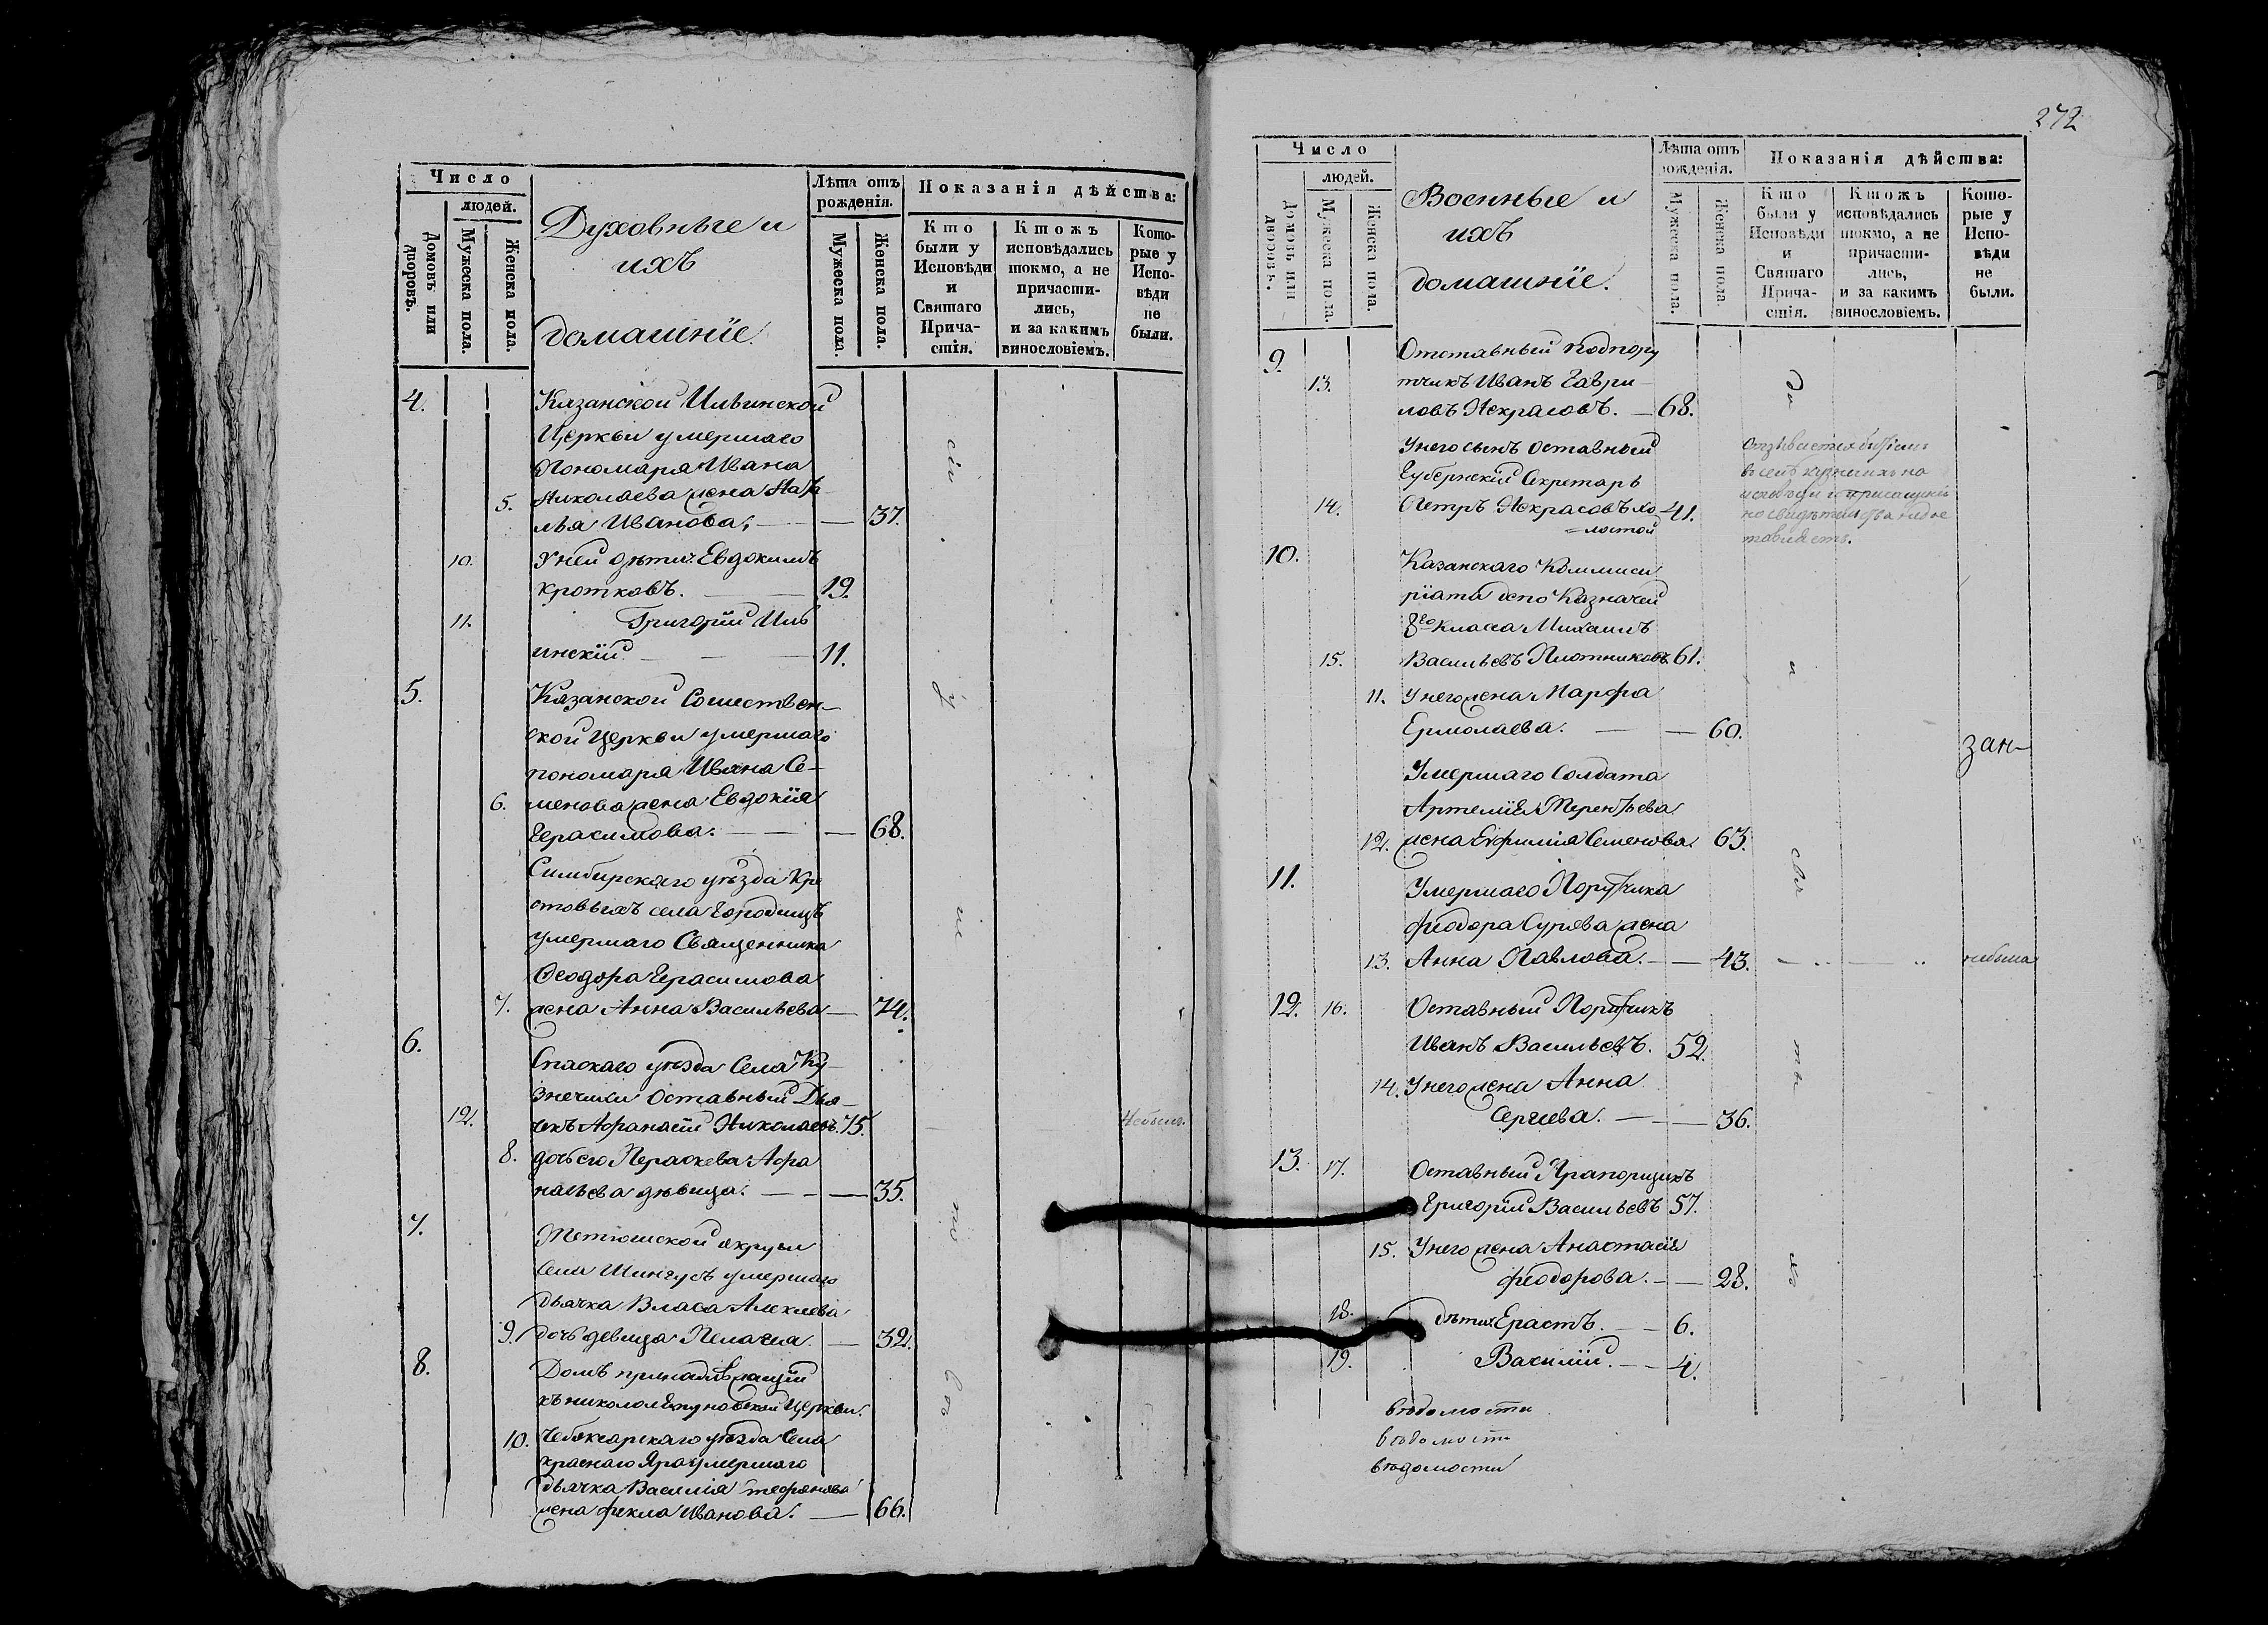 Число
людей.
Домовъ или дворовъ.
Мужеска пола.
Женска пола.
Духовные и
ихъ
домашніе.
Лѣта отъ
рожденія.
Мужеска пола.
Женска пола.
Показанія дѣйства:
Кто
были у
Исповѣди
и
Святаго
Прича-
стія.
Ктожъ
исповѣдались
токмо, а не
причасти-
лись,
и за какимъ
винословіемъ.
Кото-
рые у
Испо-
вѣди
не
были.
4. Казанской Ильинской
Церкви умершаго
Пономаря Ивана
5. Николаева жена Ната
лья Иванова. 37.
10. У ней дѣти: Евдокимъ
Кротковъ. 19.
11. Григорій Иль
инскій 11.
5. Казанской Сошествен-
ской Церкви умершаго
пономаря Ивана Се-
6. менова жена Евдокія
Герасимова. 68.
Симбирскаго уѣзда Кре
стовыхъ села Городищъ
умершаго Священника
Феодора Герасимова
7. жена Анна Васильева 74.
6. Спаскаго уѣзда Села Ку-
знечихи Оставный Дья-
12. чекъ Афанасій Николаевъ. 75. Небылъ.
8. дочь его Параскева Афа
насьева дѣвица. 35.
7. Тетюшской округи
Села Шингусъ умершаго
дьячка Власа Алексѣева
9. дочь девица Пелагея. 32.
8. Домъ принадлѣжащій
къ Церкви.
10. Чебоксарскаго уѣзда Села
краснаго Яра умершаго
дьячка Василія
жена Фекла Иванова. 66.
272
Число
людей.
Домовъ или дворовъ.
Мужеска пола.
Женска пола.
Военные и
ихъ
домашніе.
Лѣта отъ
рожденія.
Мужеска пола.
Женска пола.
Показанія дѣйства:
Кто
были у
Исповѣди
и
Святаго
Прича-
стія.
Ктожъ
исповѣдались
токмо, а не
причасти-
лись,
и за какимъ
винословіемъ.
Кото-
рые у
Испо-
вѣди
не
были.
9. Отставный Подпору
13. тчикъ Иванъ Гаври-
ловъ Некрасовъ. 68.
У него сынъ Оставный
Губернскій Секретарь
14. Петръ Некрасовъ хо 41.
=лостой
10. Казанскаго Коммиси
ріати депо Казначей
8го класса Михаилъ
15. Васильевъ Плотниковъ 61.
11. У него жена Марфа
Ермолаева. 60.
зан-
Умершаго Солдата
Артемія Терентьева
12. жена Ефимія Семенова. 63.
11. Умершаго Порутчика
Феодора Сурева жена
13. Анна Павлова. 43. небыла
12. 16. Оставный Порутчикъ
Иванъ Васильевъ. 52.
14. У него жена Анна
Сергеева. 36.
13. 17. Оставный Прапорщикъ
Григорій Васильевъ 57.
15. У него жена Анастасія
Феодорова. 28.
18. дѣти: Ерастъ. 6.
19. Василій. 4.
вѣдомости
вѣдомости
вѣдомости